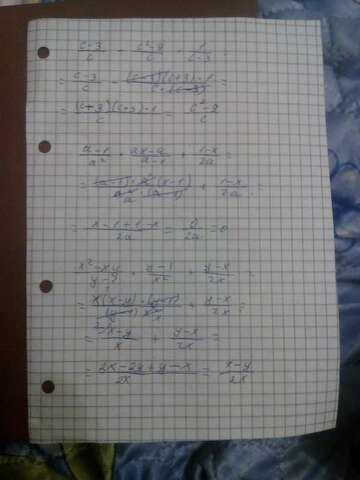 (c-3)/c - (c²-9)/c · 1/(c-3) =
= (c-3)/c - (c-3)(c+3)·1/c·(c-3) =
= /c = (c²-9)/c
(a-1)/a² · (ax-a)/(a-1) + (1-x)/2a =
= (a-1)·a(x-1)/a²·(a-1) + (1-x)/2a =
= (x-1+1-x)/2a = 0/2a = 0
(x²-xy)/ · (y-1)/x² + (y-x)/2x =
= x(x-y)·(y-1)/(y-1)x² + (y-x)/2x =
= (x-y)/x + (y-x)/2x =
= (2x-2y+y-x)/2x = (x-y)/2x